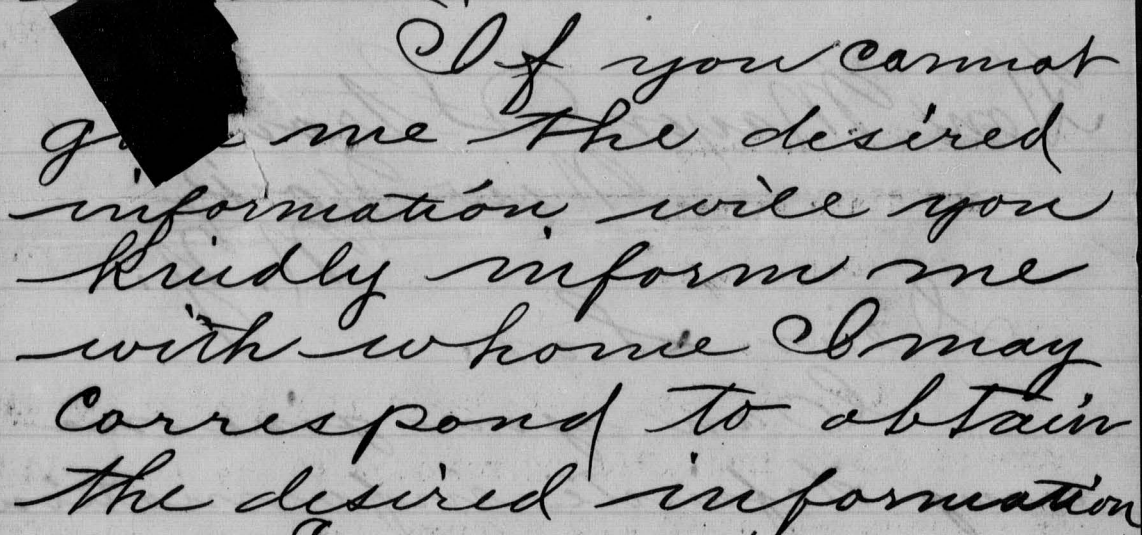 If you cannot
give me the desired
information will you
kindly inform me
with whome I may
correspond to obtain
the desired information